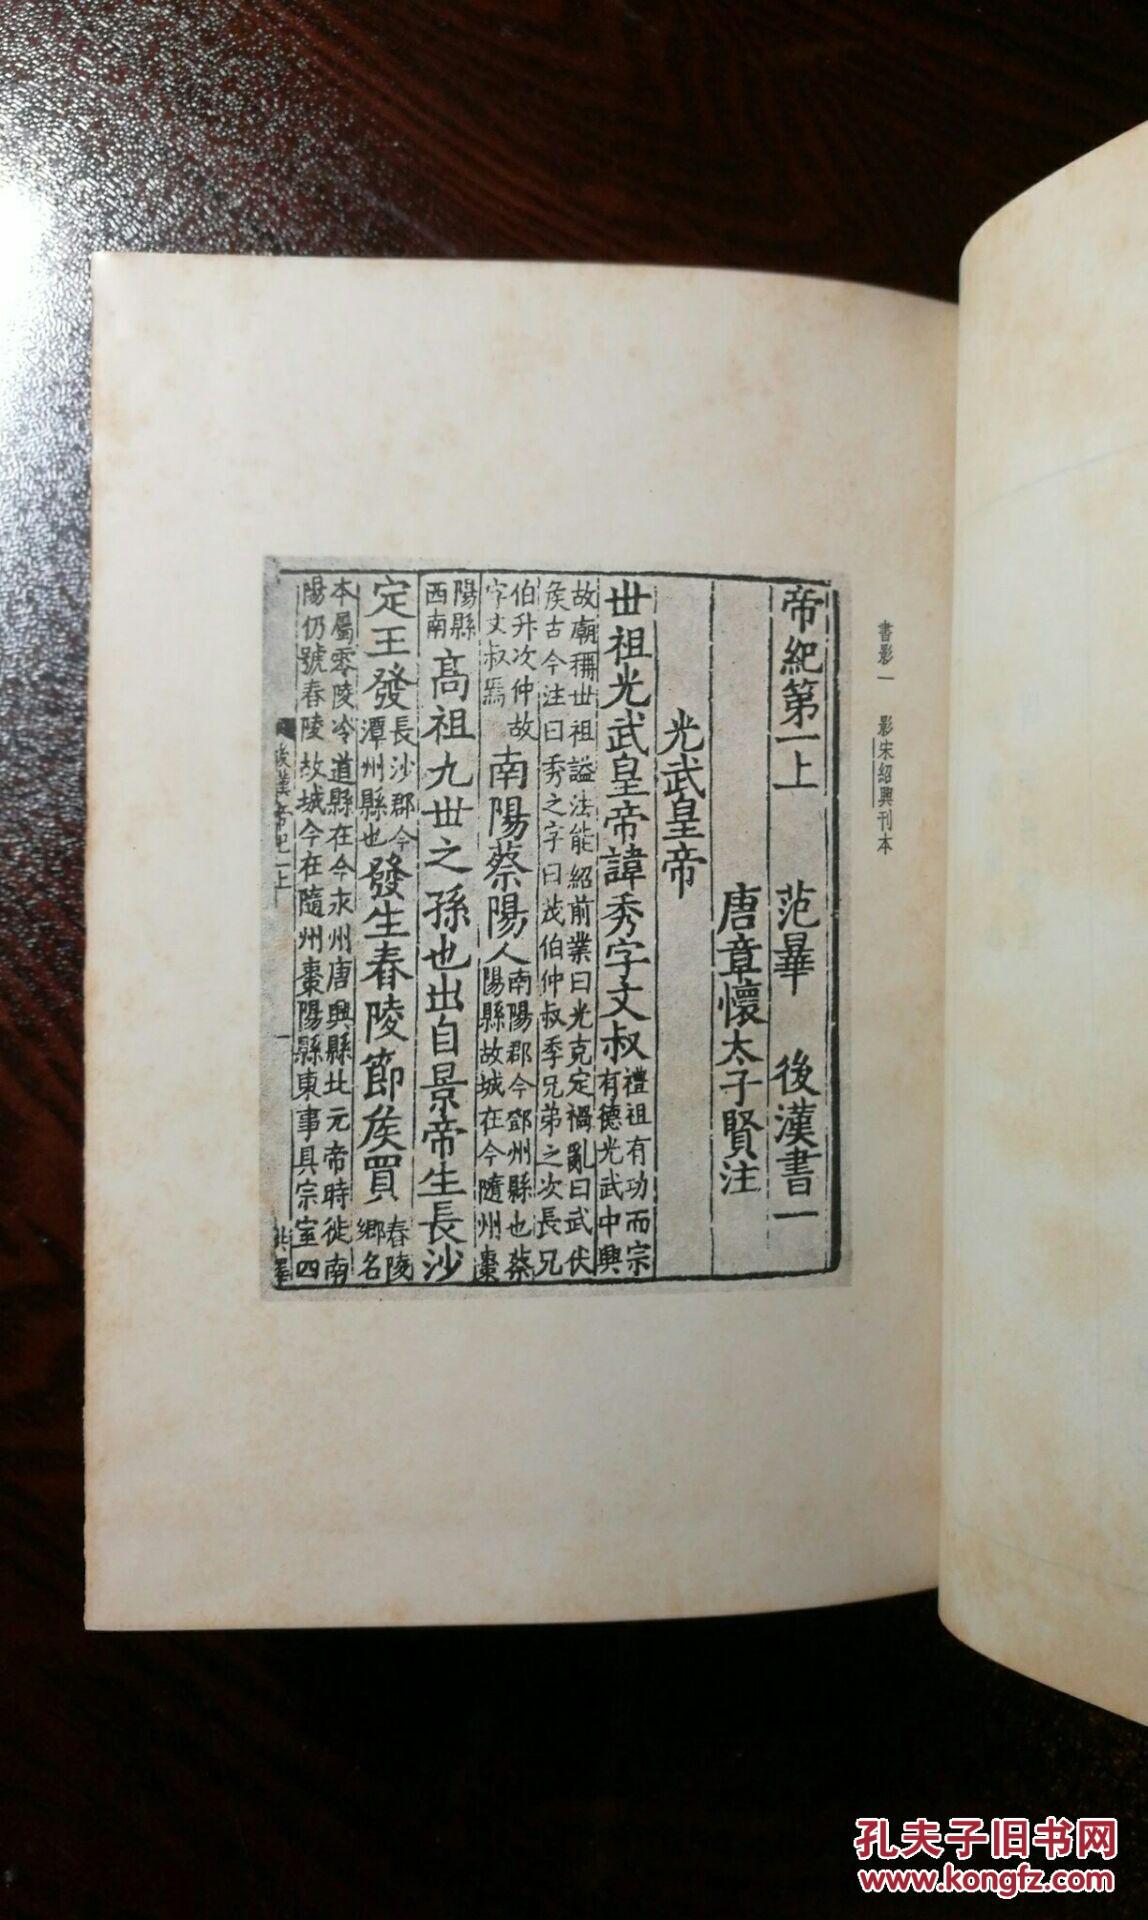 書影一 影宋紹興刊本
帝紀第一上 范曄 後漢書一
唐章懷太子賢注
光武皇帝
世祖光武皇帝諱秀字文叔禮祖有功而宗有德光武中興
故廟稱世祖謚法能紹前業曰光克定禍亂曰武伏
侯古今注曰秀之字曰茂伯仲叔季兄弟之次長兄
伯升次仲故字文叔焉南陽蔡陽人南陽郡今鄧州縣也蔡陽縣故城在今隨州棗
陽縣西南高祖九世之孫也出自景帝生長沙
定王發長沙郡今潭州縣也發生舂陵節侯買舂陵鄉名
本屬零陵冷道縣在今永州唐興縣北元帝時徙南
陽仍號舂陵故城今在隨州棗陽縣東事具宗室四
後漢帝紀一上 一
孔夫子旧书网
www.kongfz.com